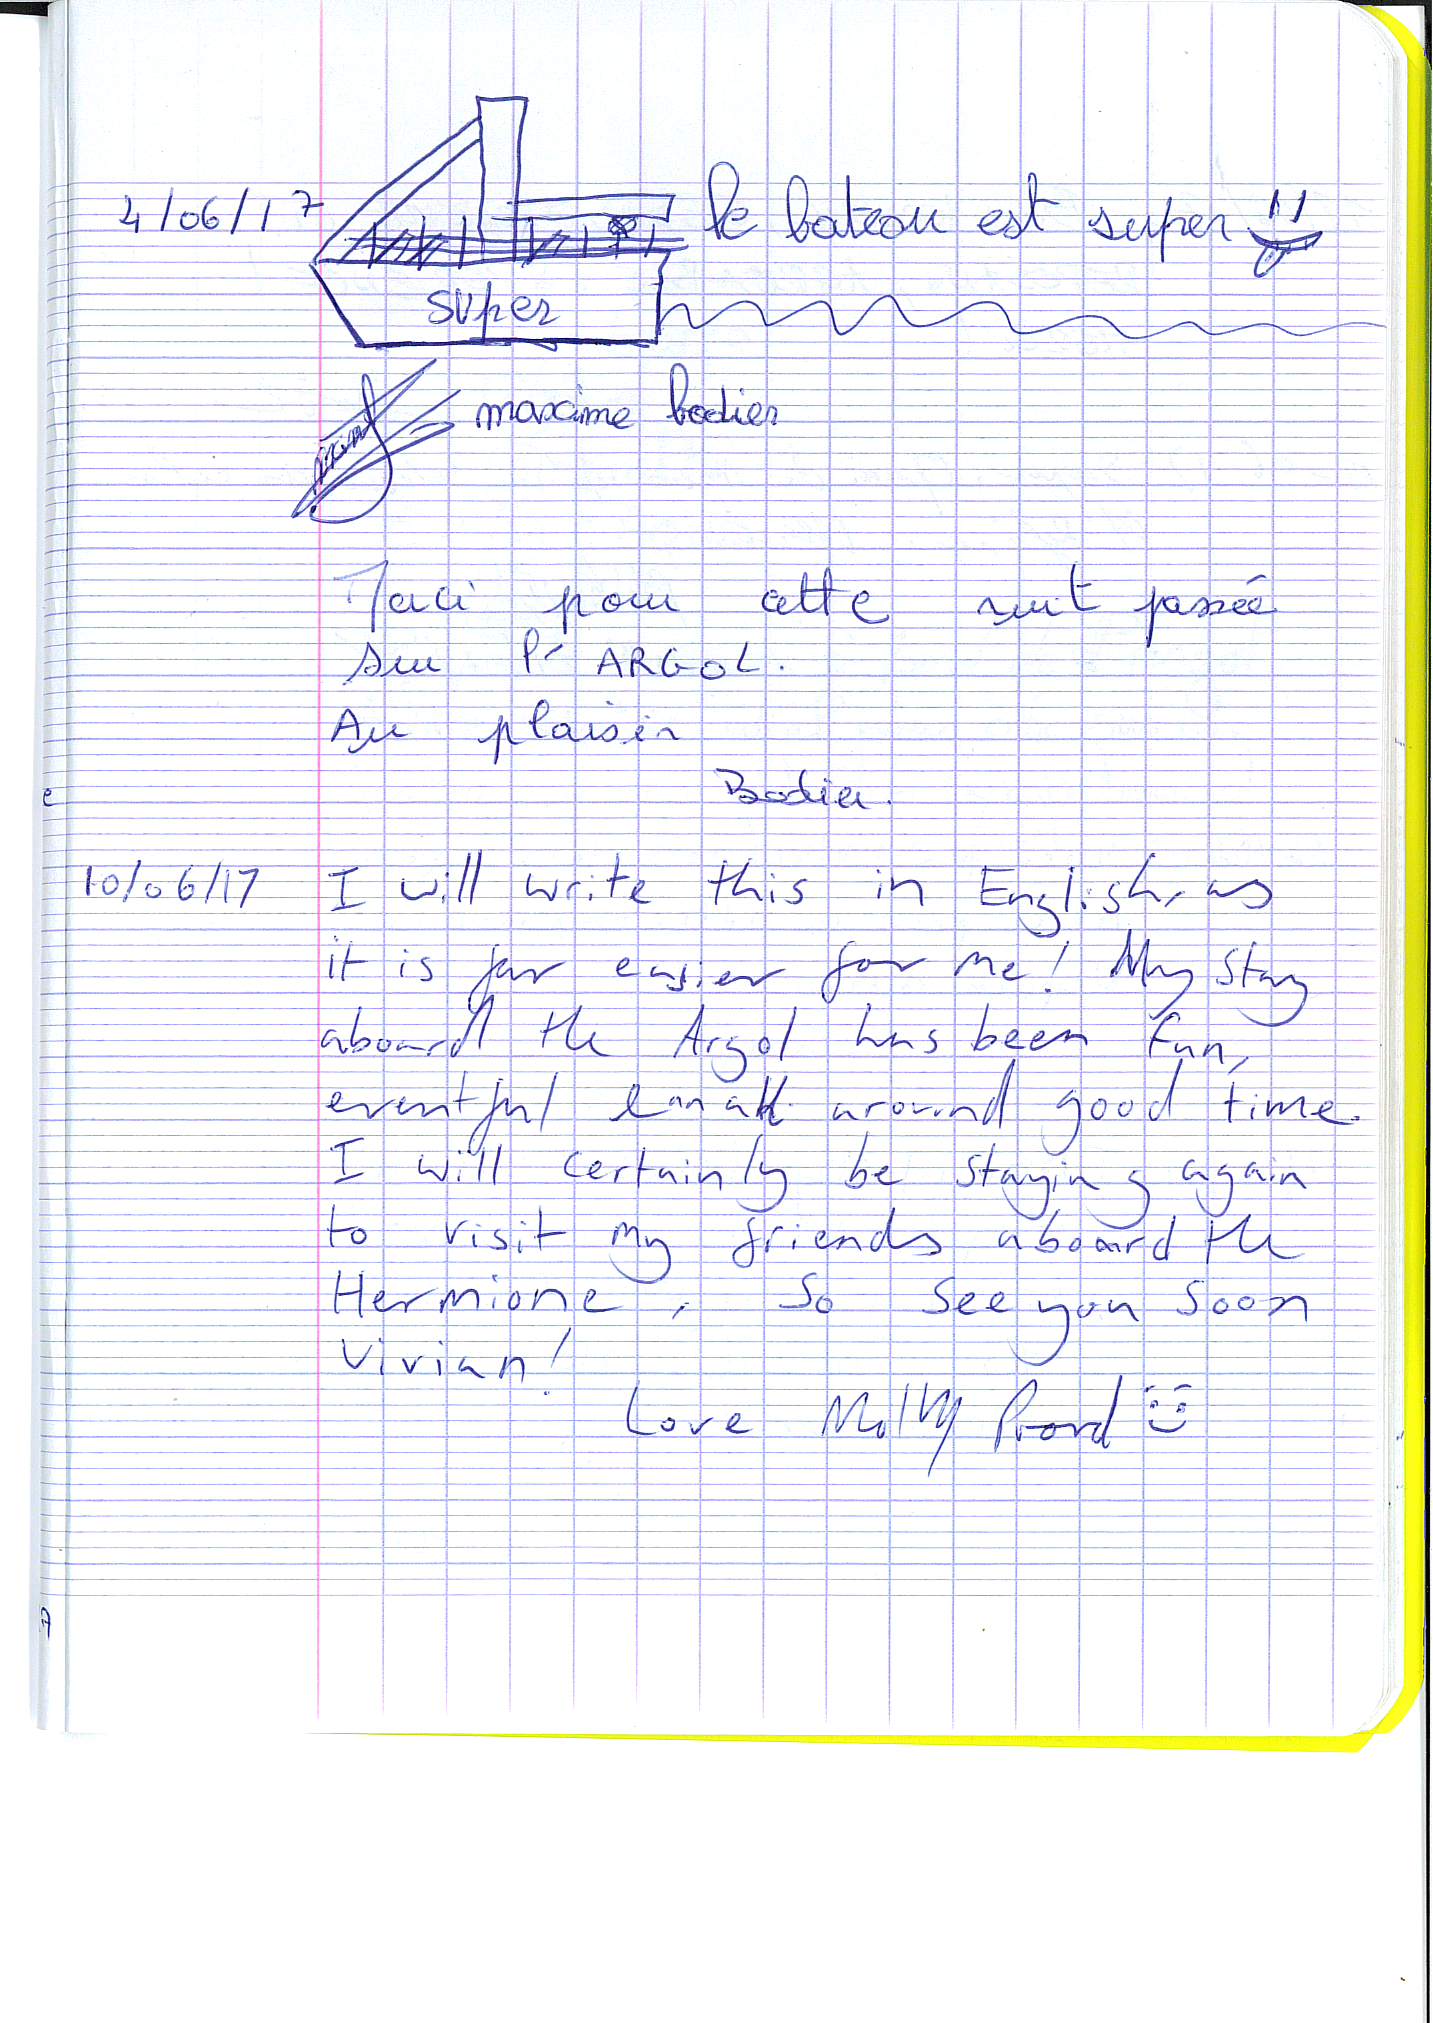 4/06/17 le bateau est super
super
maxime bodier
Merci pour cette nuit passée
sur l'ARGOL.
Au plaisir
Bodier.
10/06/17 I will write this in English, as
it is far easier for me! My stay
aboard the Argol has been fun,
eventful an all around good time.
I will certainly be staying again
to visit my friends aboard the
Hermione, so see you soon
Vivian!
Love Molly